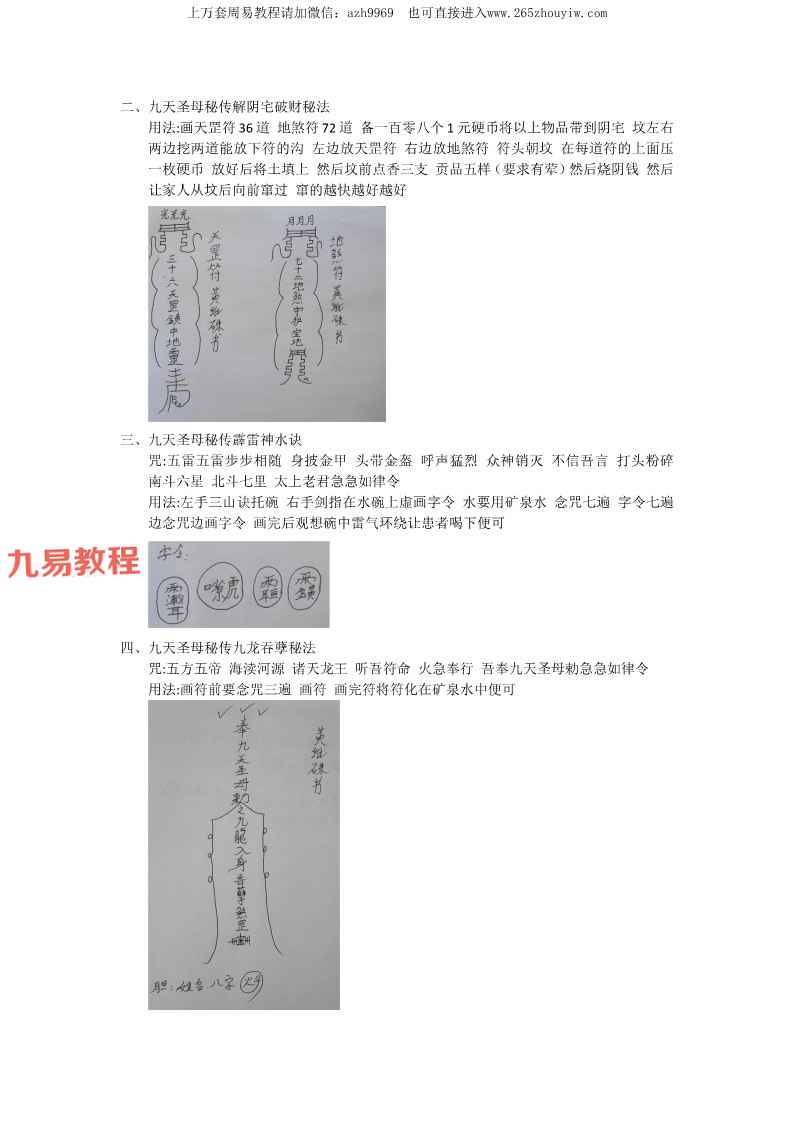 上万套周易教程请加微信：azh9969 也可直接进入www.265zhouyiw.com
二、九天圣母秘传解阴宅破财秘法
用法:画天罡符36道 地煞符72道 备一百零八个1元硬币将以上物品带到阴宅 坟左右
两边挖两道能放下符的沟 左边放天罡符 右边放地煞符 符头朝坟 在每道符的上面压
一枚硬币 放好后将土填上 然后坟前点香三支 贡品五样（要求有荤）然后烧阴钱 然后
让家人从坟后向前窜过 窜的越快越好越好
三十六天罡鎮中地靈
天罡符
黄紙硃书
月月月
七十二地煞守护宝地
地煞符
黄紙硃书
三、九天圣母秘传霹雷神水诀
咒:五雷五雷步步相随 身披金甲 头带金盔 呼声猛烈 众神销灭 不信吾言 打头粉碎
南斗六星 北斗七里 太上老君急急如律令
用法:左手三山诀托碗 右手剑指在水碗上虚画字令 水要用矿泉水 念咒七遍 字令七遍
边念咒边画字令 画完后观想碗中雷气环绕让患者喝下便可
九易教程
字令:
四、九天圣母秘传九龙吞孽秘法
咒:五方五帝 海渎河源 诸天龙王 听吾符命 火急奉行 吾奉九天圣母勅急急如律令
用法:画符前要念咒三遍 画符 画完符将符化在矿泉水中便可
奉九天圣母勅
九龍入身吞孽煞罡
黄紙硃书
胆:姓名八字